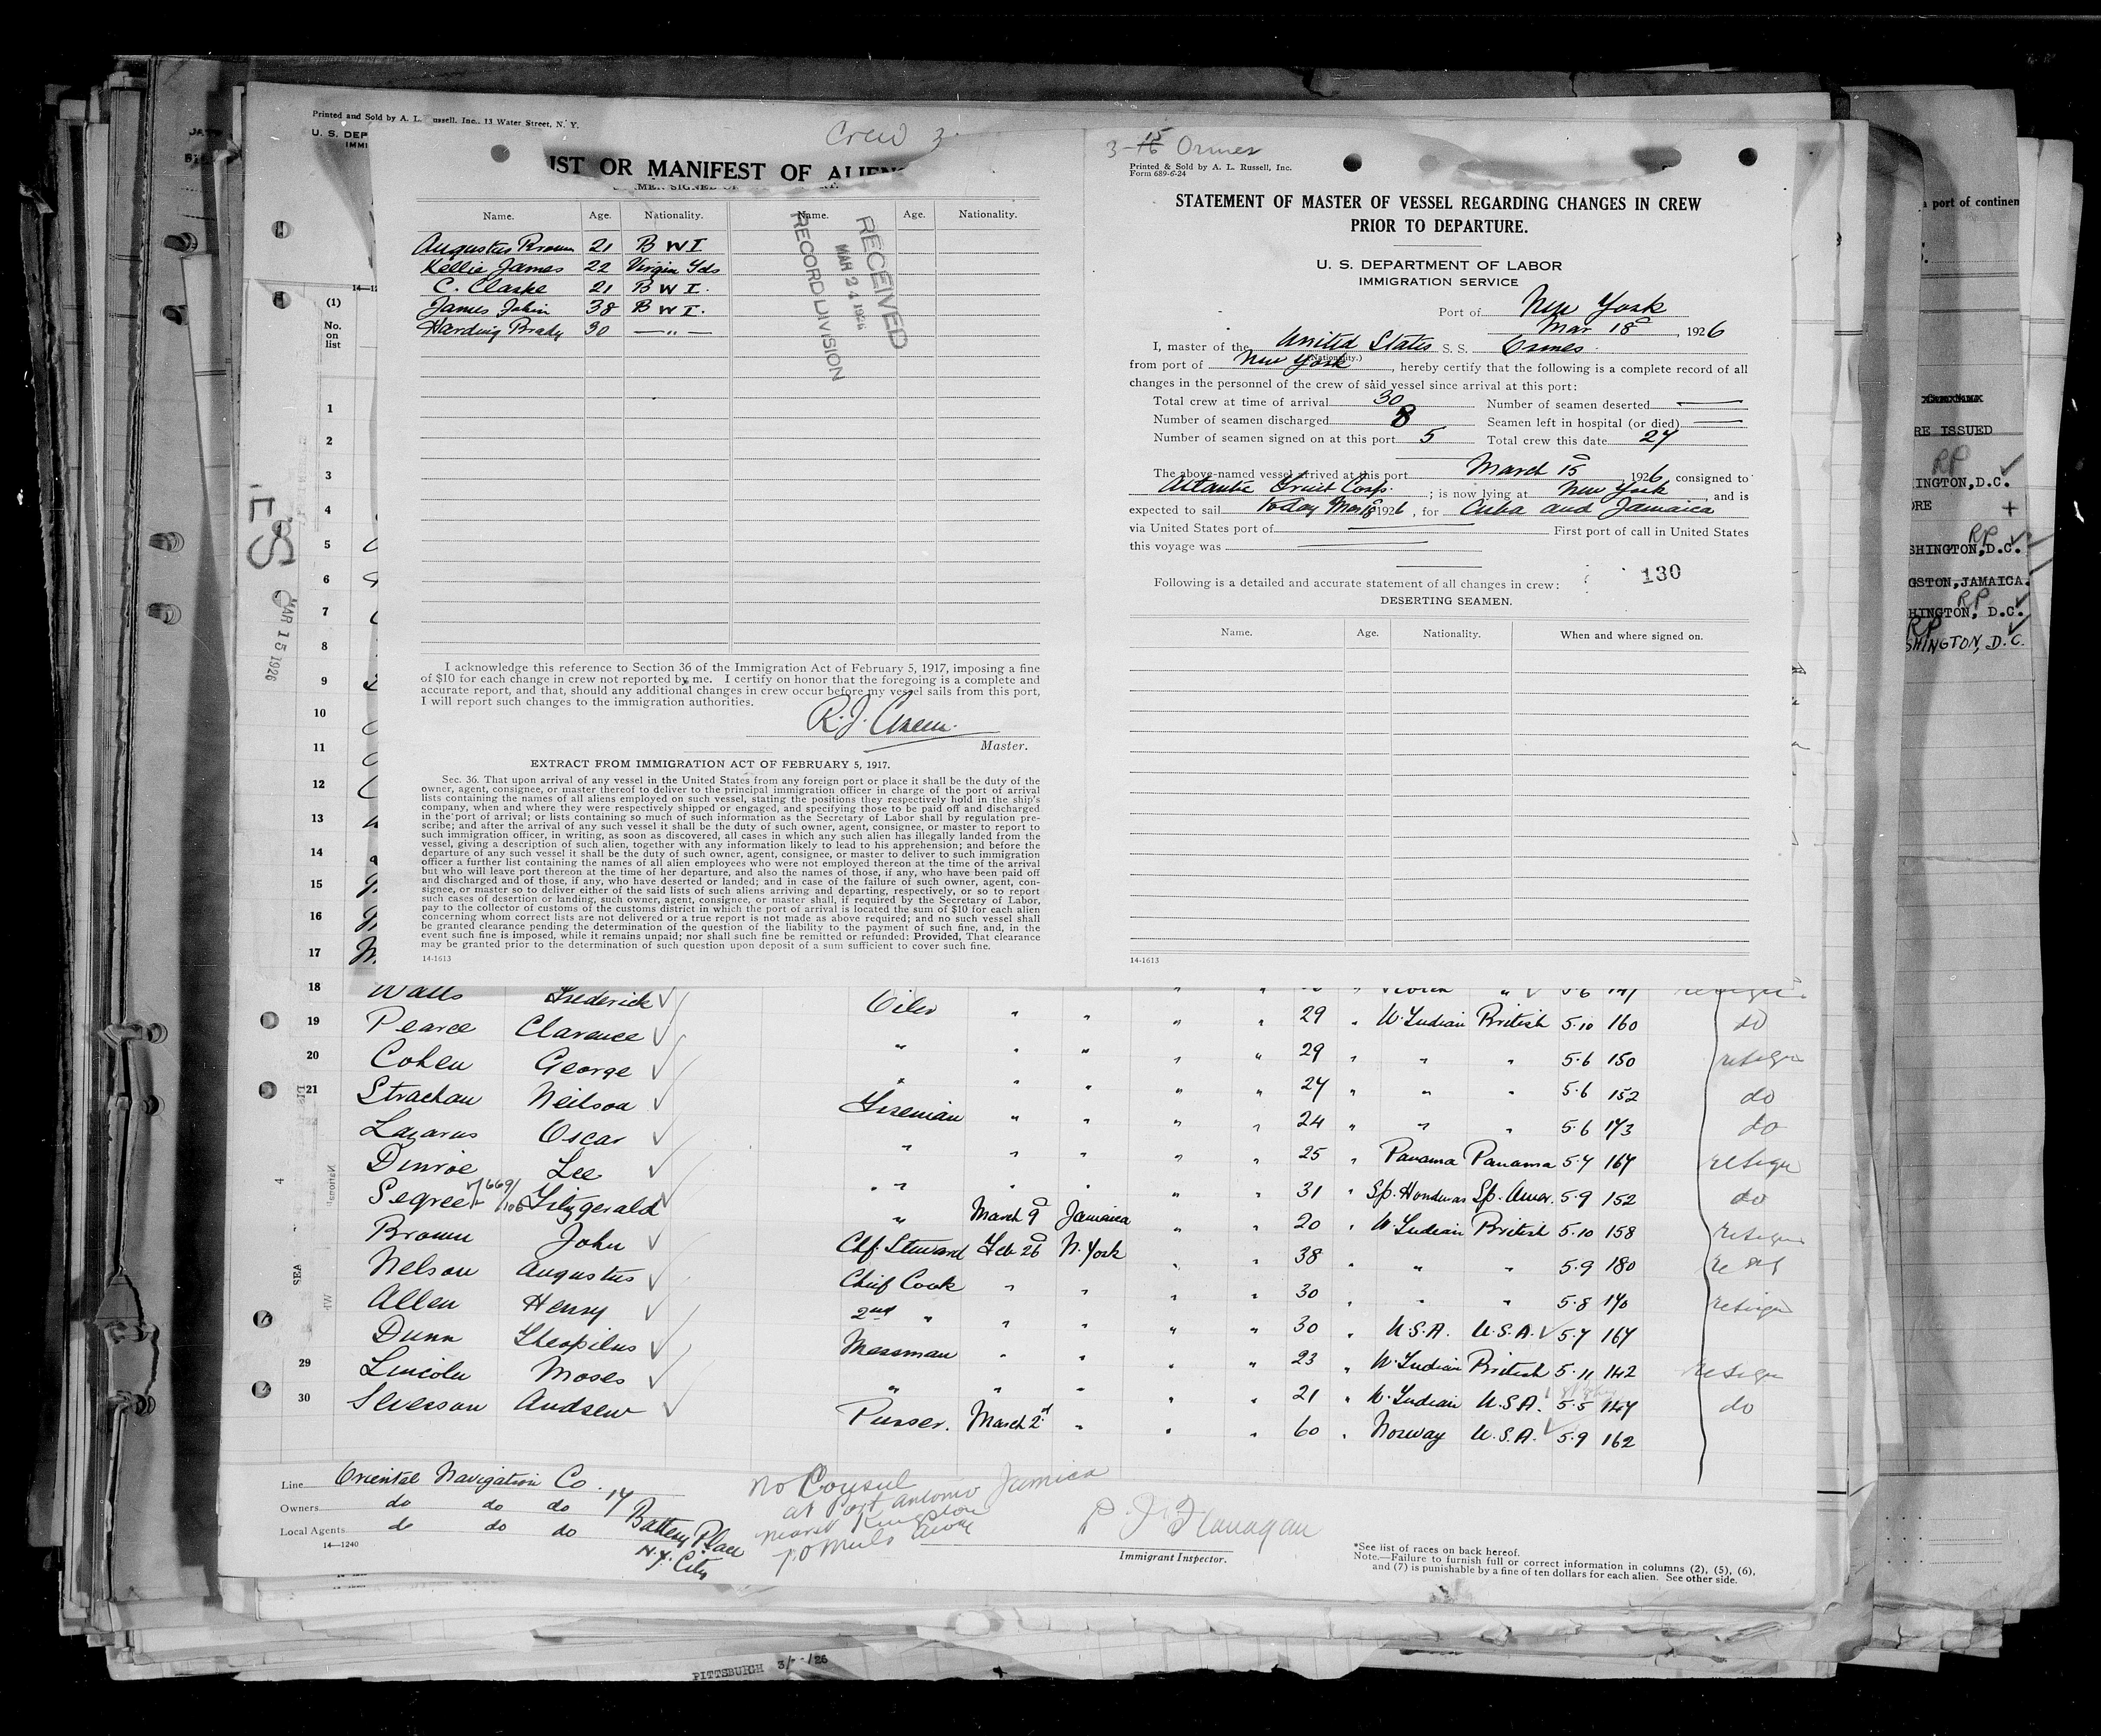 Printed and Sold by A. L. Russell, Inc., 13 Water Street, N. Y.
U. S. DEP
IMMI
Crew 3
IST OR MANIFEST OF ALIENS
Name. Age. Nationality. Name. Age. Nationality.
Augustus Brown 21 B W I
Kellie James 22 Virgin Ids
C. Clarke 21 B W I.
James John 38 B W I.
Harding Brady 30 — " —
RECEIVED
MAR 24 1926
RECORD DIVISION
I acknowledge this reference to Section 36 of the Immigration Act of February 5, 1917, imposing a fine
of $10 for each change in crew not reported by me. I certify on honor that the foregoing is a complete and
accurate report, and that, should any additional changes in crew occur before my vessel sails from this port,
I will report such changes to the immigration authorities.
R. J.
Master.
EXTRACT FROM IMMIGRATION ACT OF FEBRUARY 5, 1917.
Sec. 36. That upon arrival of any vessel in the United States from any foreign port or place it shall be the duty of the
owner, agent, consignee, or master thereof to deliver to the principal immigration officer in charge of the port of arrival
lists containing the names of all aliens employed on such vessel, stating the positions they respectively hold in the ship's
company, when and where they were respectively shipped or engaged, and specifying those to be paid off and discharged
in the port of arrival; or lists containing so much of such information as the Secretary of Labor shall by regulation pre-
scribe; and after the arrival of any such vessel it shall be the duty of such owner, agent, consignee, or master to report to
such immigration officer, in writing, as soon as discovered, all cases in which any such alien has illegally landed from the
vessel, giving a description of such alien, together with any information likely to lead to his apprehension; and before the
departure of any such vessel it shall be the duty of such owner, agent, consignee, or master to deliver to such immigration
officer a further list containing the names of all alien employees who were not employed thereon at the time of the arrival
but who will leave port thereon at the time of her departure, and also the names of those, if any, who have been paid off
and discharged and of those, if any, who have deserted or landed; and in case of the failure of such owner, agent, con-
signee, or master so to deliver either of the said lists of such aliens arriving and departing, respectively, or so to report
such cases of desertion or landing, such owner, agent, consignee, or master shall, if required by the Secretary of Labor,
pay to the collector of customs of the customs district in which the port of arrival is located the sum of $10 for each alien
concerning whom correct lists are not delivered or a true report is not made as above required; and no such vessel shall
be granted clearance pending the determination of the question of the liability to the payment of such fine, and, in the
event such fine is imposed, while it remains unpaid; nor shall such fine be remitted or refunded: Provided, That clearance
may be granted prior to the determination of such question upon deposit of a sum sufficient to cover such fine.
14-1613
3-15 Ormes
Printed & Sold by A. L. Russell, Inc.
Form 689-6-24
STATEMENT OF MASTER OF VESSEL REGARDING CHANGES IN CREW
PRIOR TO DEPARTURE.
U. S. DEPARTMENT OF LABOR
IMMIGRATION SERVICE
Port of New York
Mar 18th, 1926
I, master of the United States S. S. Ormes
(Nationality.)
from port of New York, hereby certify that the following is a complete record of all
changes in the personnel of the crew of said vessel since arrival at this port:
Total crew at time of arrival 30 Number of seamen deserted —
Number of seamen discharged 8 Seamen left in hospital (or died) —
Number of seamen signed on at this port 5 Total crew this date 27
The above-named vessel arrived at this port March 15 1926 consigned to
Atlantic Fruit Corp.; is now lying at New York, and is
expected to sail today Mar 18 1926, for Cuba and Jamaica
via United States port of — First port of call in United States
this voyage was —
Following is a detailed and accurate statement of all changes in crew:
130
DESERTING SEAMEN.
Name. Age. Nationality. When and where signed on.
14-1613
(1)
No.
on
list
1
2
3
4
5
6
7
8
9
10
11
12
13
14
15
16
17
MAR 15 1926
18 Watts Frederick Oiler " " " " 5·6 147
19 Pearce Clarence " " " " " 29 " W. Indian British 5·10 160 do
20 Cohen George " " " " " 29 " " " 5·6 150 resign
21 Strachan Neilson Fireman " " " " 27 " " " 5·6 152 do
Lazarus Oscar " " " " " 24 " " " 5·6 173 do
Dinroe Lee " " " " " 25 " Panama Panama 5·7 167 resign
Segree Fitzgerald " March 9 Jamaica " " 31 " Sp. Honduras Sp. Amer. 5·9 152 do
Brown John Chf. Steward Feb 26 N. York " " 20 " W. Indian British 5·10 158 resign
Nelson Augustus Chief Cook " " " " 38 " " " 5·9 180
Allen Henry 2nd " " " " " 30 " " " 5·8 170 resign
Dunn Theopilus Messman " " " " 30 " U.S.A. U.S.A. 5·7 167
29 Lincoln Moses " " " " " 23 " W. Indian British 5·11 142 resign
30 Severson Andrew Purser. March 2nd " " " 21 " W. Indian U.S.A. 5·5 147 do
60 " Norway U.S.A. 5·9 162
Line Oriental Navigation Co.
Owners do do do 17 Battery Place
Local Agents do do do N.Y. City
14—1240
No Consul
at Port Antonio Jamica
nearest Kingston
70 miles away
P J Flanagan
Immigrant Inspector.
*See list of races on back hereof.
Note.—Failure to furnish full or correct information in columns (2), (5), (6),
and (7) is punishable by a fine of ten dollars for each alien. See other side.
PITTSBURGH
a port of continen
RE ISSUED
RP
INGTON,D.C.
ORE +
RP
SHINGTON,D.C.
GSTON,JAMAICA.
RP
HINGTON, D.C.
RP
SHINGTON, D.C.